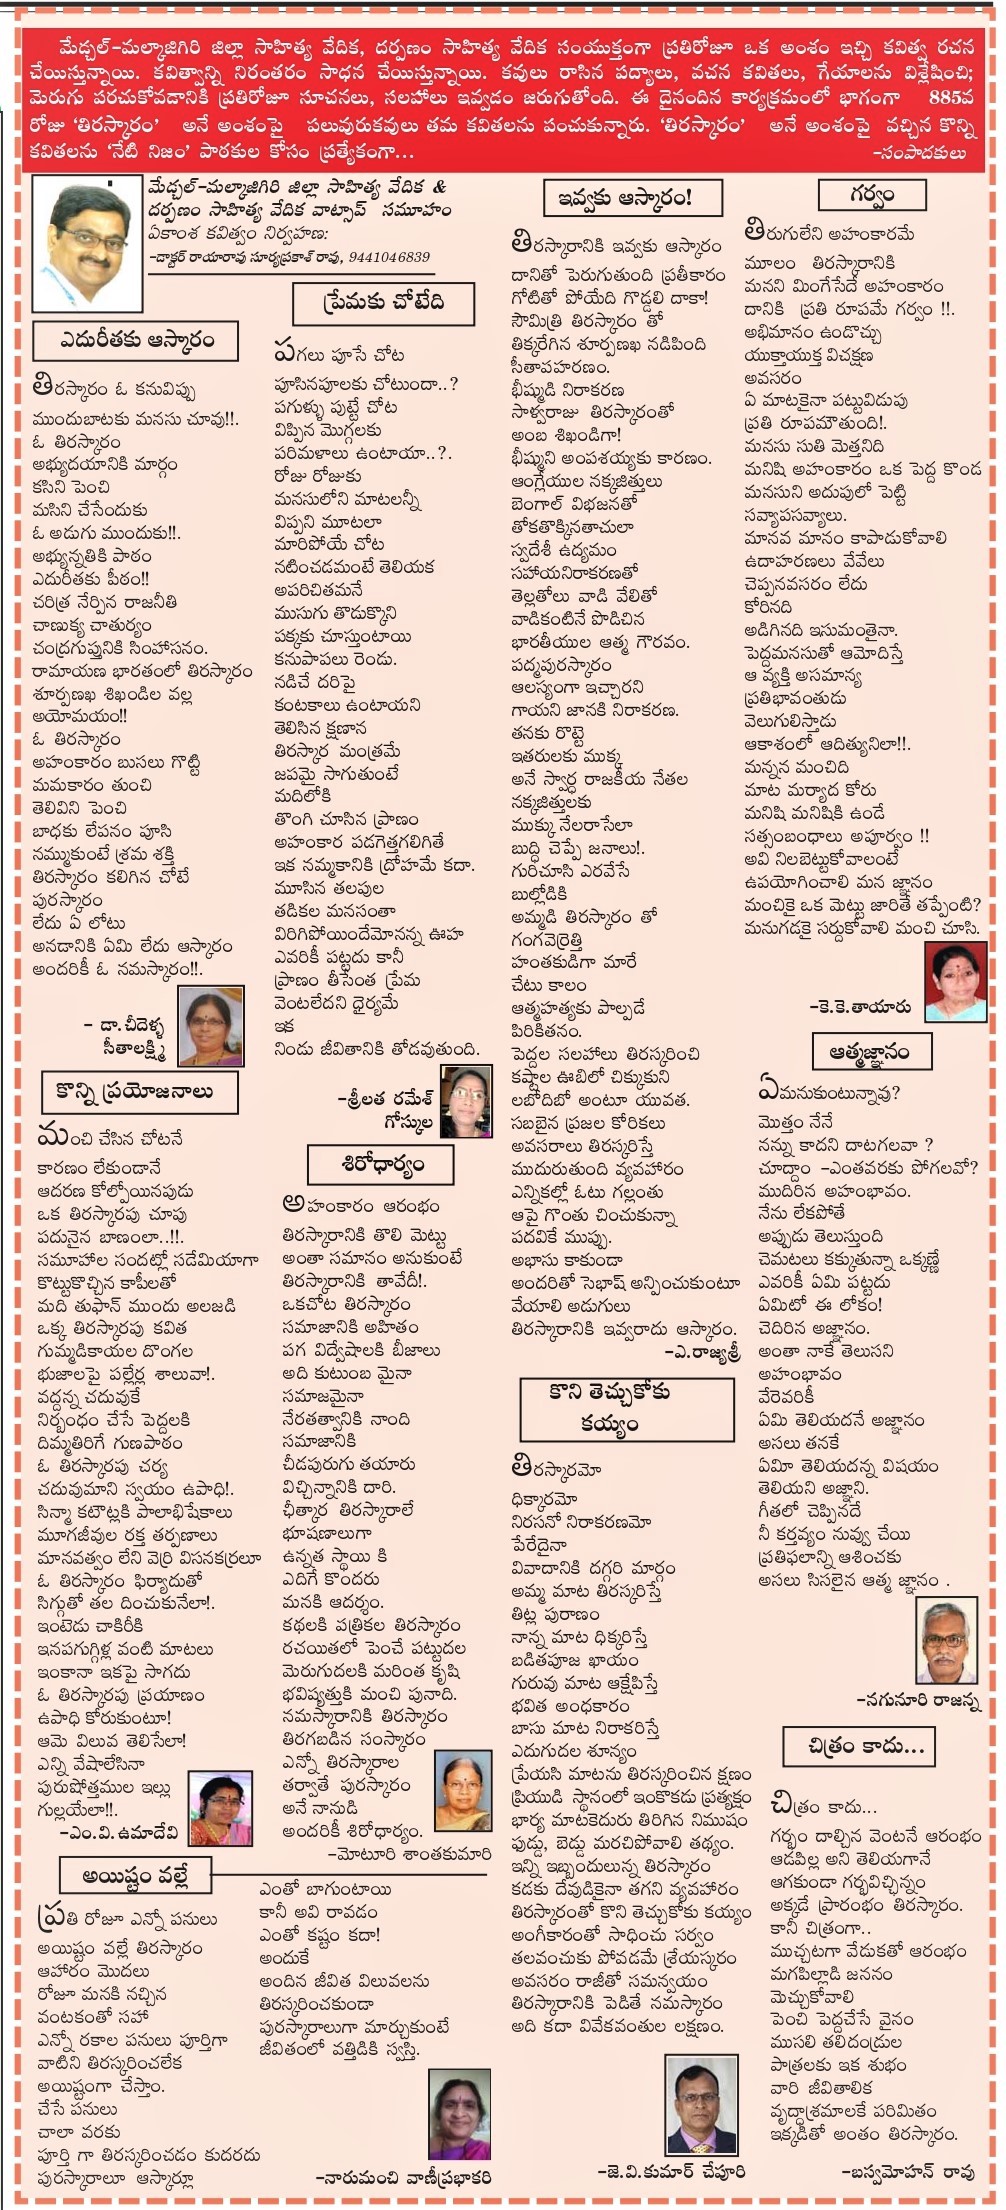 మేడ్చల్-మల్కాజిగిరి జిల్లా సాహిత్య వేదిక, దర్పణం సాహిత్య వేదిక సంయుక్తంగా ప్రతిరోజూ ఒక అంశం ఇచ్చి కవిత్వ రచన
చేయిస్తున్నాయి. కవిత్వాన్ని నిరంతరం సాధన చేయిస్తున్నాయి. కవులు రాసిన పద్యాలు, వచన కవితలు, గేయాలను విశ్లేషించి;
మెరుగు పరచుకోవడానికి ప్రతిరోజూ సూచనలు, సలహాలు ఇవ్వడం జరుగుతోంది. ఈ దైనందిన కార్యక్రమంలో భాగంగా 885వ
రోజు 'తిరస్కారం' అనే అంశంపై పలువురుకవులు తమ కవితలను పంచుకున్నారు. 'తిరస్కారం' అనే అంశంపై వచ్చిన కొన్ని
కవితలను 'నేటి నిజం' పాఠకుల కోసం ప్రత్యేకంగా...
-సంపాదకులు
మేడ్చల్-మల్కాజిగిరి జిల్లా సాహిత్య వేదిక &
దర్పణం సాహిత్య వేదిక వాట్సాప్ సమూహం
ఏకాంశ కవిత్వం నిర్వహణ:
-డాక్టర్ రాయారావు సూర్యప్రకాశ్ రావు, 9441046839
ఎదురీతకు ఆస్కారం
తిరస్కారం ఓ కనువిప్పు
ముందుబాటకు మనసు చూవు!!.
ఓ తిరస్కారం
అభ్యుదయానికి మార్గం
కసిని పెంచి
మసిని చేసేందుకు
ఓ అడుగు ముందుకు!!.
అభ్యున్నతికి పాఠం
ఎదురీతకు పీఠం!!
చరిత్ర నేర్పిన రాజనీతి
చాణుక్య చాతుర్యం
చంద్రగుప్తునికి సింహాసనం.
రామాయణ భారతంలో తిరస్కారం
శూర్పణఖ శిఖండిల వల్ల
అయోమయం!!
ఓ తిరస్కారం
అహంకారం బుసలు గొట్టి
మమకారం తుంచి
తెలివిని పెంచి
బాధకు లేపనం పూసి
నమ్ముకుంటే శ్రమ శక్తి
తిరస్కారం కలిగిన చోటే
పురస్కారం
లేదు ఏ లోటు
అనడానికి ఏమి లేదు ఆస్కారం
అందరికీ ఓ నమస్కారం!!.
- డా.చీదెళ్ళ
సీతాలక్ష్మి
కొన్ని ప్రయోజనాలు
మంచి చేసిన చోటనే
కారణం లేకుండానే
ఆదరణ కోల్పోయినపుడు
ఒక తిరస్కారపు చూపు
పదునైన బాణంలా..!!.
సమూహాల సందట్లో సడేమియాగా
కొట్టుకొచ్చిన కాపీలతో
మది తుఫాన్ ముందు అలజడి
ఒక్క తిరస్కారపు కవిత
గుమ్మడికాయల దొంగల
భుజాలపై పల్లేర్ల శాలువా!.
వద్దన్న చదువుకే
నిర్బంధం చేసే పెద్దలకి
దిమ్మతిరిగే గుణపాఠం
ఓ తిరస్కారపు చర్య
చదువుమాని స్వయం ఉపాధి!.
సిన్మా కటౌట్లకి పాలాభిషేకాలు
మూగజీవుల రక్త తర్పణాలు
మానవత్వం లేని వెర్రి విసనకర్రలూ
ఓ తిరస్కారం ఫిర్యాదుతో
సిగ్గుతో తల దించుకునేలా!.
ఇంటెడు చాకిరీకి
ఇనపగుగ్గిళ్ల వంటి మాటలు
ఇంకానా ఇకపై సాగదు
ఓ తిరస్కారపు ప్రయాణం
ఉపాధి కోరుకుంటూ!
ఆమె విలువ తెలిసేలా!
ఎన్ని వేషాలేసినా
పురుషోత్తముల ఇల్లు
గుల్లయేలా!!.
-ఎం.వి.ఉమాదేవి
ప్రేమకు చోటేది
పగలు పూసే చోట
పూసినపూలకు చోటుందా..?
పగుళ్ళు పుట్టే చోట
విప్పిన మొగ్గలకు
పరిమళాలు ఉంటాయా..?.
రోజు రోజుకు
మనసులోని మాటలన్నీ
విప్పని మూటలా
మారిపోయే చోట
నటించడమంటే తెలియక
అపరిచితమనే
ముసుగు తొడుక్కొని
పక్కకు చూస్తుంటాయి
కనుపాపలు రెండు.
నడిచే దరిపై
కంటకాలు ఉంటాయని
తెలిసిన క్షణాన
తిరస్కార మంత్రమే
జపమై సాగుతుంటే
మదిలోకి
తొంగి చూసిన ప్రాణం
అహంకార పడగెత్తగలిగితే
ఇక నమ్మకానికి ద్రోహమే కదా.
మూసిన తలపుల
తడికల మనసంతా
విరిగిపోయిందేమోనన్న ఊహ
ఎవరికీ పట్టదు కానీ
ప్రాణం తీసేంత ప్రేమ
వెంటలేదని ధైర్యమే
ఇక
నిండు జీవితానికి తోడవుతుంది.
-శ్రీలత రమేశ్
గోస్కుల
శిరోధార్యం
అహంకారం ఆరంభం
తిరస్కారానికి తొలి మెట్టు
అంతా సమానం అనుకుంటే
తిరస్కారానికి తావేదీ!.
ఒకచోట తిరస్కారం
సమాజానికి అహితం
పగ విద్వేషాలకి బీజాలు
అది కుటుంబ మైనా
సమాజమైనా
నేరతత్వానికి నాంది
సమాజానికి
చీడపురుగు తయారు
విచ్ఛిన్నానికి దారి.
ఛీత్కార తిరస్కారాలే
భూషణాలుగా
ఉన్నత స్థాయి కి
ఎదిగే కొందరు
మనకి ఆదర్శం.
కథలకి పత్రికల తిరస్కారం
రచయితలో పెంచే పట్టుదల
మెరుగుదలకి మరింత కృషి
భవిష్యత్తుకి మంచి పునాది.
నమస్కారానికి తిరస్కారం
తిరగబడిన సంస్కారం
ఎన్నో తిరస్కారాల
తర్వాతే పురస్కారం
అనే నానుడి
అందరికీ శిరోధార్యం.
-మోటూరి శాంతకుమారి
అయిష్టం వల్లే
ప్రతి రోజూ ఎన్నో పనులు
అయిష్టం వల్లే తిరస్కారం
ఆహారం మొదలు
రోజూ మనకి నచ్చిన
వంటకంతో సహా
ఎన్నో రకాల పనులు పూర్తిగా
వాటిని తిరస్కరించలేక
అయిష్టంగా చేస్తాం.
చేసే పనులు
చాలా వరకు
పూర్తి గా తిరస్కరించడం కుదరదు
పురస్కారాలూ ఆస్కార్లూ
ఎంతో బాగుంటాయి
కానీ అవి రావడం
ఎంతో కష్టం కదా!
అందుకే
అందిన జీవిత విలువలను
తిరస్కరించకుండా
పురస్కారాలుగా మార్చుకుంటే
జీవితంలో వత్తిడికి స్వస్తి.
-నారుమంచి వాణీప్రభాకరి
ఇవ్వకు ఆస్కారం!
తిరస్కారానికి ఇవ్వకు ఆస్కారం
దానితో పెరుగుతుంది ప్రతీకారం
గోటితో పోయేది గొడ్డలి దాకా!
సౌమిత్రి తిరస్కారం తో
తిక్కరేగిన శూర్పణఖ నడిపింది
సీతాపహరణం.
భీష్ముడి నిరాకరణ
సాళ్వరాజు తిరస్కారంతో
అంబ శిఖండిగా!
భీష్ముని అంపశయ్యకు కారణం.
ఆంగ్లేయుల నక్కజిత్తులు
బెంగాల్ విభజనతో
తోకతొక్కినతాచులా
స్వదేశీ ఉద్యమం
సహాయనిరాకరణతో
తెల్లతోలు వాడి వేలితో
వాడికంటినే పొడిచిన
భారతీయుల ఆత్మ గౌరవం.
పద్మపురస్కారం
ఆలస్యంగా ఇచ్చారని
గాయని జానకి నిరాకరణ.
తనకు రొట్టె
ఇతరులకు ముక్క
అనే స్వార్థ రాజకీయ నేతల
నక్కజిత్తులకు
ముక్కు నేలరాసేలా
బుద్ధి చెప్పే జనాలు!.
గురిచూసి ఎరవేసే
బుల్లోడికి
అమ్మడి తిరస్కారం తో
గంగవెర్రెత్తి
హంతకుడిగా మారే
చేటు కాలం
ఆత్మహత్యకు పాల్పడే
పిరికితనం.
పెద్దల సలహాలు తిరస్కరించి
కష్టాల ఊబిలో చిక్కుకుని
లబోదిబో అంటూ యువత.
సబబైన ప్రజల కోరికలు
అవసరాలు తిరస్కరిస్తే
ముదురుతుంది వ్యవహారం
ఎన్నికల్లో ఓటు గల్లంతు
ఆపై గొంతు చించుకున్నా
పదవికే ముప్పు.
అభాసు కాకుండా
అందరితో సెభాష్ అన్పించుకుంటూ
వేయాలి అడుగులు
తిరస్కారానికి ఇవ్వరాదు ఆస్కారం.
-ఎ.రాజ్యశ్రీ
కొని తెచ్చుకోకు
కయ్యం
తిరస్కారమో
ధిక్కారమో
నిరసనో నిరాకరణమో
పేరేదైనా
వివాదానికి దగ్గరి మార్గం
అమ్మ మాట తిరస్కరిస్తే
తిట్ల పురాణం
నాన్న మాట ధిక్కరిస్తే
బడితపూజ ఖాయం
గురువు మాట ఆక్షేపిస్తే
భవిత అంధకారం
బాసు మాట నిరాకరిస్తే
ఎదుగుదల శూన్యం
ప్రేయసి మాటను తిరస్కరించిన క్షణం
ప్రియుడి స్థానంలో ఇంకొకడు ప్రత్యక్షం
భార్య మాటకెదురు తిరిగిన నిముషం
ఫుడ్డు, బెడ్డు మరచిపోవాలి తథ్యం.
ఇన్ని ఇబ్బందులున్న తిరస్కారం
కడకు దేవుడికైనా తగని వ్యవహారం
తిరస్కారంతో కొని తెచ్చుకోకు కయ్యం
అంగీకారంతో సాధించు సర్వం
తలవంచుకు పోవడమే శ్రేయస్కరం
అవసరం రాజీతో సమన్వయం
తిరస్కారానికి పెడితే నమస్కారం
అది కదా వివేకవంతుల లక్షణం.
-జె.వి.కుమార్ చేపూరి
గర్వం
తిరుగులేని అహంకారమే
మూలం తిరస్కారానికి
మనని మింగేసేదే అహంకారం
దానికి ప్రతి రూపమే గర్వం !!.
అభిమానం ఉండొచ్చు
యుక్తాయుక్త విచక్షణ
అవసరం
ఏ మాటకైనా పట్టువిడుపు
ప్రతి రూపమౌతుంది!.
మనసు సుతి మెత్తనిది
మనిషి అహంకారం ఒక పెద్ద కొండ
మనసుని అదుపులో పెట్టి
సవ్యాపసవ్యాలు.
మానవ మానం కాపాడుకోవాలి
ఉదాహరణలు వేవేలు
చెప్పనవసరం లేదు
కోరినది
అడిగినది ఇసుమంతైనా.
పెద్దమనసుతో ఆమోదిస్తే
ఆ వ్యక్తి అసమాన్య
ప్రతిభావంతుడు
వెలుగులిస్తాడు
ఆకాశంలో ఆదిత్యునిలా!!.
మన్నన మంచిది
మాట మర్యాద కోరు
మనిషి మనిషికి ఉండే
సత్సంబంధాలు అపూర్వం !!
అవి నిలబెట్టుకోవాలంటే
ఉపయోగించాలి మన జ్ఞానం
మంచికై ఒక మెట్టు జారితే తప్పేంటి?
మనుగడకై సర్దుకోవాలి మంచి చూసి.
-కె.కె.తాయారు
ఆత్మజ్ఞానం
ఏమనుకుంటున్నావు?
మొత్తం నేనే
నన్ను కాదని దాటగలవా ?
చూద్దాం -ఎంతవరకు పోగలవో?
ముదిరిన అహంభావం.
నేను లేకపోతే
అప్పుడు తెలుస్తుంది
చెమటలు కక్కుతున్నా ఒక్కణ్ణే
ఎవరికీ ఏమి పట్టదు
ఏమిటో ఈ లోకం!
చెదిరిన అజ్ఞానం.
అంతా నాకే తెలుసని
అహంభావం
వేరెవరికీ
ఏమి తెలియదనే అజ్ఞానం
అసలు తనకే
ఏమీ తెలియదన్న విషయం
తెలియని అజ్ఞాని.
గీతలో చెప్పినదే
నీ కర్తవ్యం నువ్వు చేయి
ప్రతిఫలాన్ని ఆశించకు
అసలు సిసలైన ఆత్మ జ్ఞానం .
-నగునూరి రాజన్న
చిత్రం కాదు...
చిత్రం కాదు...
గర్భం దాల్చిన వెంటనే ఆరంభం
ఆడపిల్ల అని తెలియగానే
ఆగకుండా గర్భవిచ్ఛిన్నం
అక్కడే ప్రారంభం తిరస్కారం.
కానీ చిత్రంగా..
ముచ్చటగా వేడుకతో ఆరంభం
మగపిల్లాడి జననం
మెచ్చుకోవాలి
పెంచి పెద్దచేసే వైనం
ముసలి తలిదండ్రుల
పాత్రలకు ఇక శుభం
వారి జీవితాలిక
వృద్ధాశ్రమాలకే పరిమితం
ఇక్కడితో అంతం తిరస్కారం.
-బస్వమోహన్ రావు